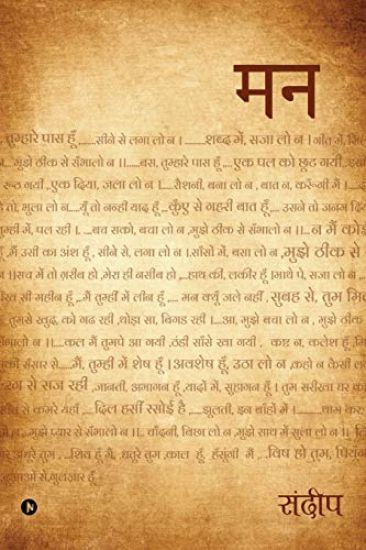 मन
तुम्हारे पास हूँ ,......सीने से लगा लो न ।.........शब्द में, सजा लो न ।गीत में,
...मुझे ठीक से सँभालो न ।।......बस, तुम्हारे पास हूँ,....एक पल को छूट गयी,
रूठ गयी ,एक दिया, जला लो न ।.....रौशनी, बना लो न , बात न, करूँगी मैं ।
तो, भुला लो न....यूँ तो नन्ही याद हूँ ,..कुँए से गहरी बात हूँ,.... उसने तो जनम
तुम्हीं में, पल रही ।. ..बच सको, बचा लो न ,मुझे ठीक से सँभालो न ।।... न मैं कोई
मैं उसी का अंश हूँ , सीने से, लगा लो न ।.साँसों में, बसा लो न ,मुझे ठीक से
।।सच में तो ग़रीब हो ,मेरा ही नसीब हो ,...हाथ की, लकीर हूँ ।माथे पे, सजा लो न ,
सी महीन हूँ ,..मैं तुम्हीं में लीन हूँ ,.... मन क्यूँ जले नहीं ,सुबह से, तुम
तुमसे खुद, को गढ रही ,थोड़ा सा, बिगड रही ।....आ, मुझे बचा लो न , मुझे ठीक से
सँभालो न ।।....कल मैं तुमपे आ गयी ,ठंडी साँसे खा गयी . न, कलेश हूँ,
की सँसार से....मैं, तुम्हीं में शेष हूँ ।अवशेष हूँ, उठा लो न ,कहो न कैसी
से सज रही ,जानती, अभागन हूँ ,यादों में, सुहागन हूँ । तुम सरीखा घर
से कमरे यहाँ ,....दिल हसीं रसोई है ,...झूलती, इन बाँहों में ।............थाम
न ,..मुझे प्यार से सँभालो न ।।.. चाँदनी, बिछा लो न ,मुझे साथ में सुला लो न ।
अधरे तुम , ..शिव हूँ मैं, धतूरे तुम ,काल हूँ, हँसुंगी मैं ...,विष हो तुम,
,गुलज़ार हूँ
संदीप
N